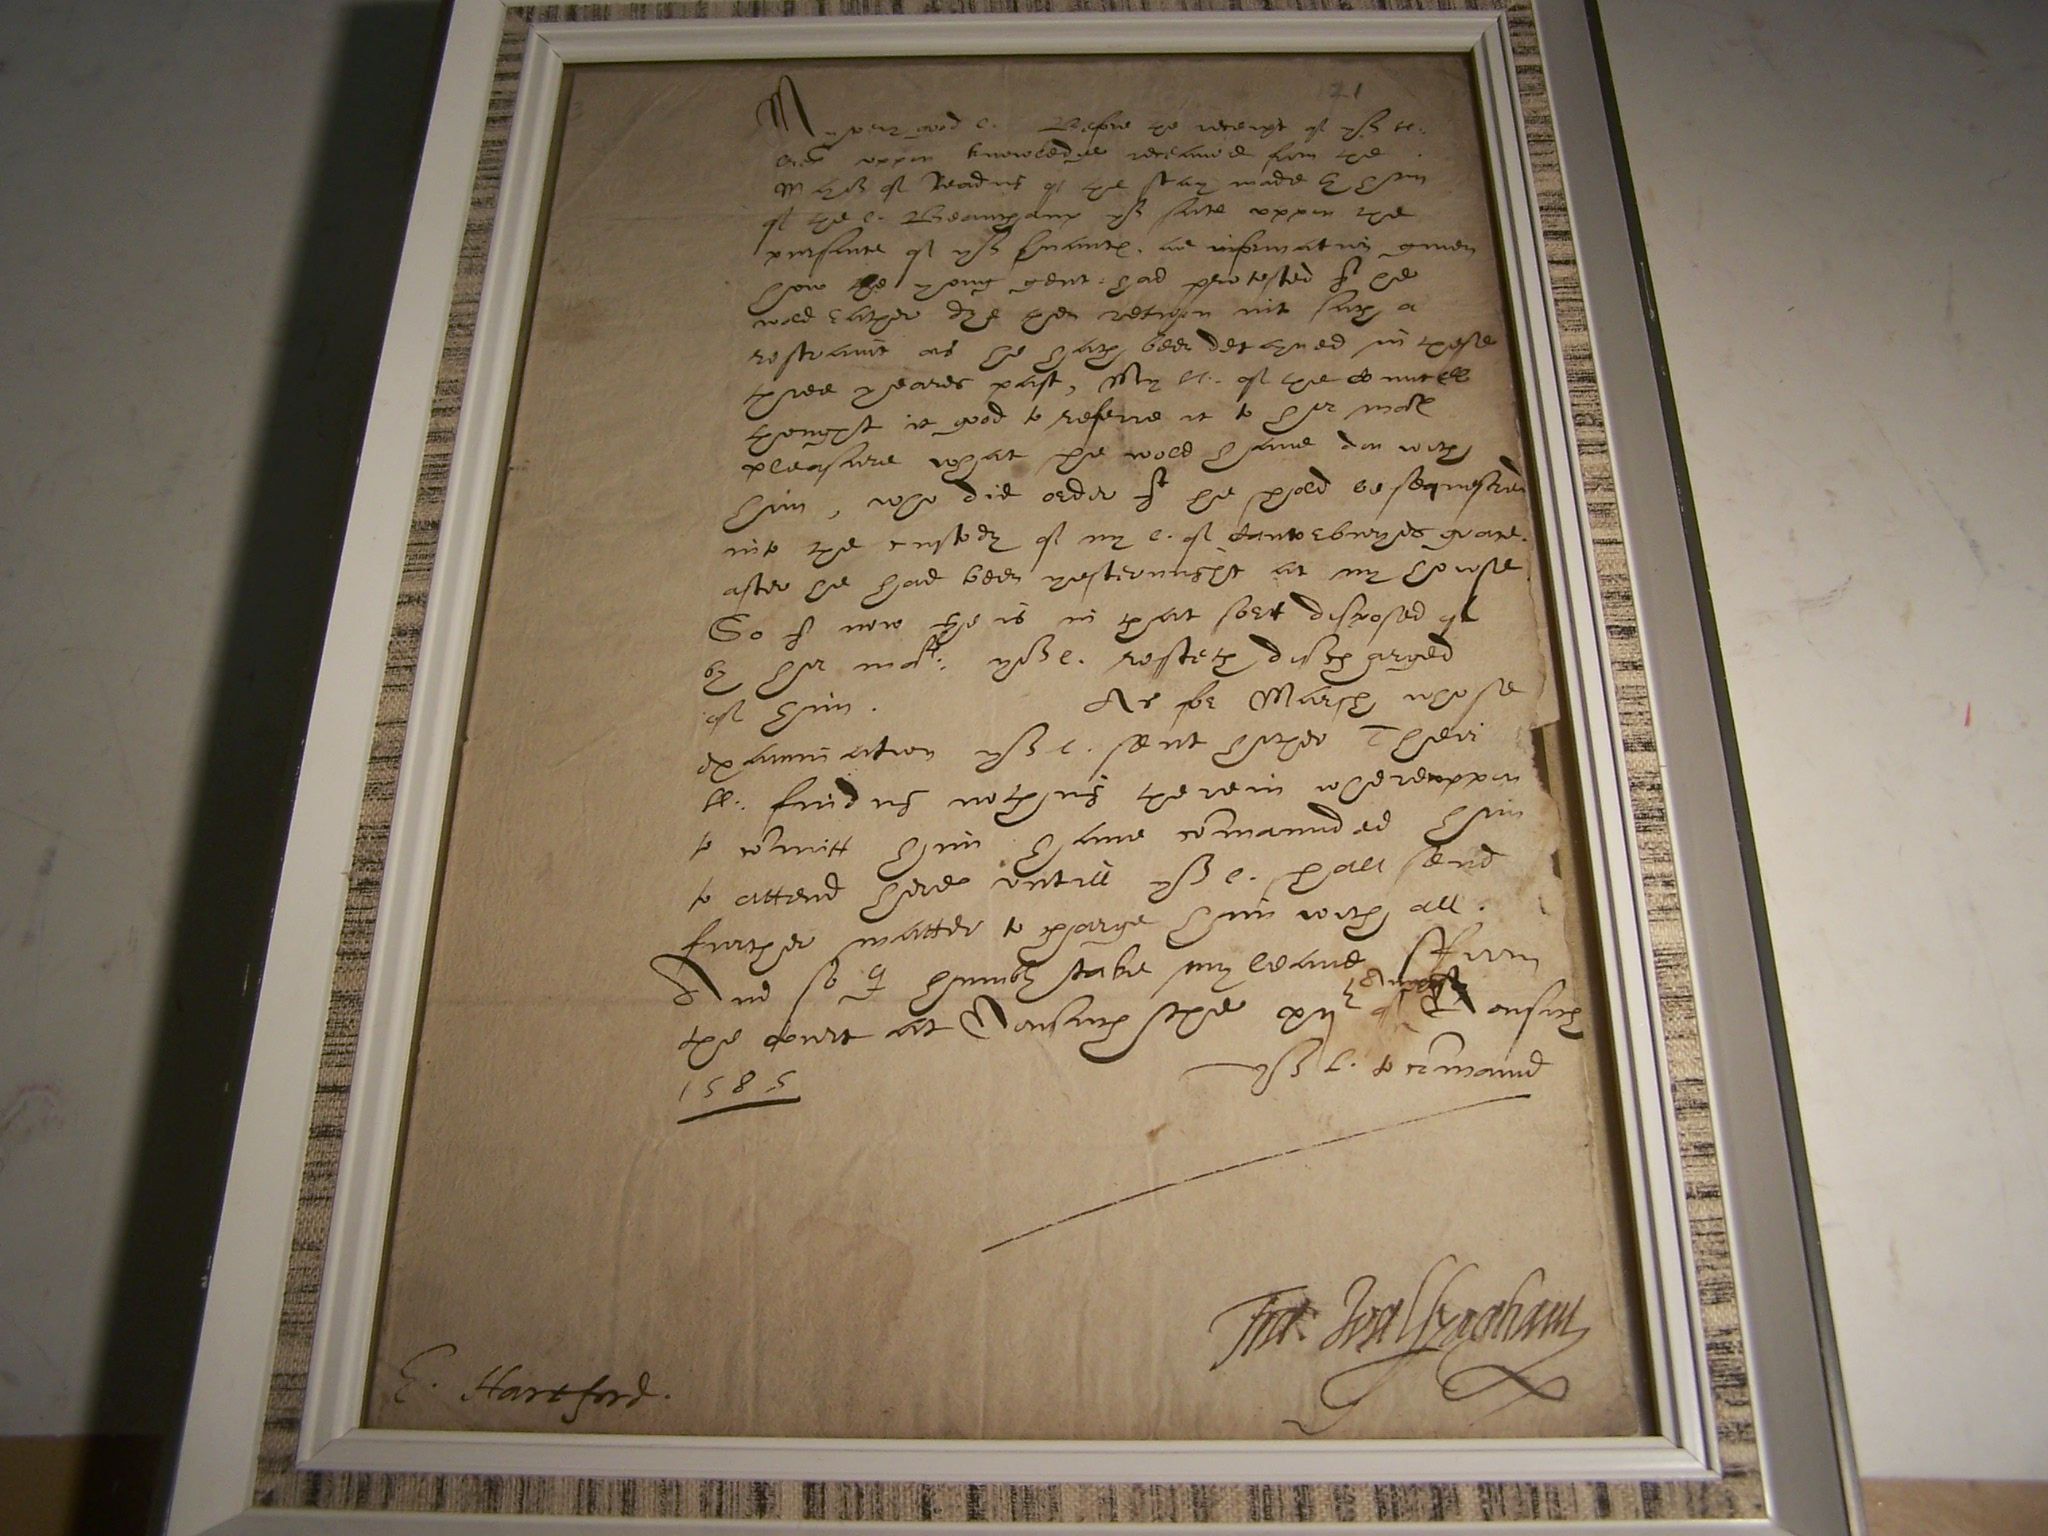 21
My verie good L. Before the receipt of yor ll:
lres uppon knowledge receaved from the
Maior of Reading of the stay made by him
of the L. Beauchamp yor sone uppon the
pursute of yor servauntes. as information given
how the yong gent: had protested yt he
wold rather dye then return into such a
restraint as he hath been detayned in these
three yeares past, My ll. of the Counsell
thought it good to referre it to her mats
pleasure what she wold have don with
him, who did order yt he shold be sequestred
into the custody of my L. of Canterburyes grace.
after he had been yesternight at my howse
So yt now he is in that sort disposed of
by her matie: yor L. resteth discharged
of him. As for Marsh whose
examination yor L. sent hether Their
ll: finding nothing therein whereuppon
to comitt him have commaunded him
to attend here untill yor L. shall send
further matter to charge him with all.
And so I humbly take my leave ffrom
the Court at Nonsuch the of Nonsuch
1585 yor L. to commaund
Fra: Walsyngham
E. Hartford.